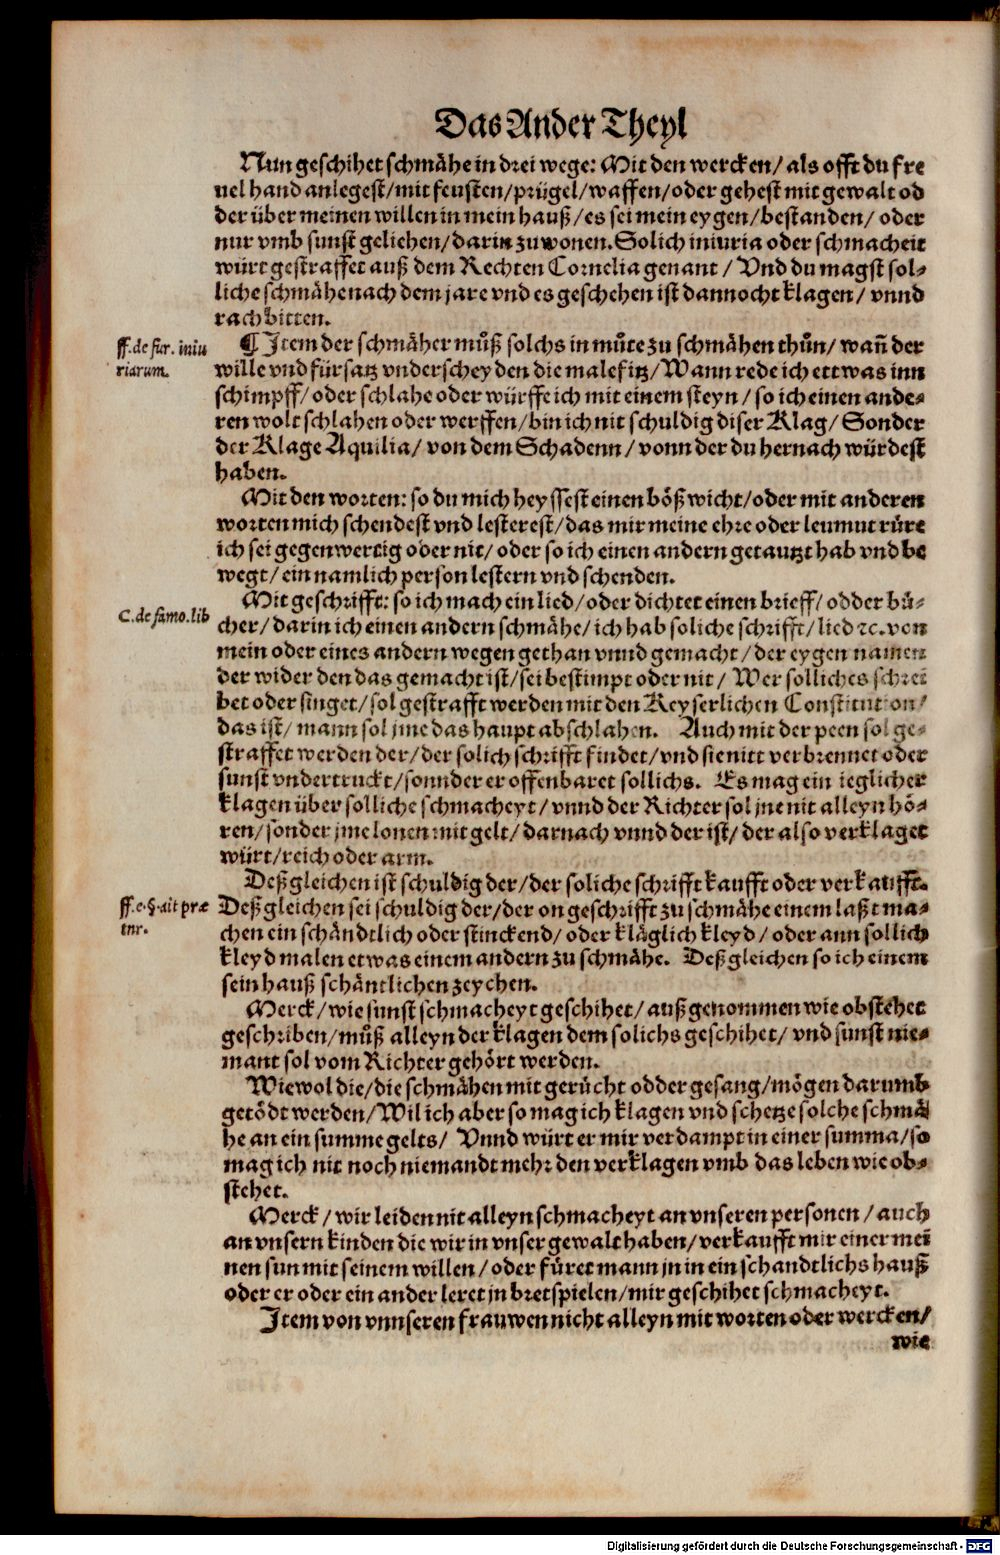 Das Ander Theyl
Nun geschihet schmähe in drei wege: Mit den wercken/ als offt du fre
uel hand anlegest/mit feusten/prügel/waffen/oder gehest mit gewalt od
der über meinen willen in mein hauß/es sei mein eygen/bestanden/ oder
nur vmb sunst geliehen/darin zu wonen. Solich iniuria oder schmacheit
würt gestraffet auß dem Rechten Cornelia genant / Vnd du magst sol-
liche schmähe nach dem jare vnd es geschehen ist dannocht klagen/ vnnd
rach bitten.
ff. de fur. iniu
riarum.
¶ Item der schmäher můß solchs in můte zu schmähen thůn/ wañ der
wille vnd fürsatz vnderscheyden die malefitz/Wann rede ich ettwas inn
schimpff/oder schlahe oder würffe ich mit einem steyn/ so ich einen ande-
ren wolt schlahen oder werffen/bin ich nit schuldig diser Klag/ Sonder
der Klage Aquilia/ von dem Schadenn/ vonn der du hernach würdest
haben.
Mit den worten: so du mich heyssest einen bößwicht/oder mit anderen
worten mich schendest vnd lesterest/das mir meine ehre oder leumut rüre
ich sei gegenwertig oder nit/ oder so ich einen andern getautzt hab vnd be
wegt/ein namlich person lestern vnd schenden.
C. de famo. lib
Mit geschrifft: so ich mach ein lied/oder dichtet einen brieff/ odder bü-
cher/darin ich einen andern schmähe/ich hab soliche schrifft/lied ꝛc. von
mein oder eines andern wegen gethan vnnd gemacht/der eygen namen
der wider den das gemacht ist/sei bestimpt oder nit/ Wer solliches schrei
bet oder singet/sol gestrafft werden mit den Keyserlichen Constitution/
das ist/ mann sol jme das haupt abschlahen. Auch mit der peen sol ge-
straffet werden der/der solich schrifft findet/vnd sie nitt verbrennet oder
sunst vndertruckt/sonnder er offenbaret sollichs. Es mag ein ieglicher
klagen über solliche schmacheyt/vnnd der Richter sol jne nit alleyn hö-
ren/sonder jme lonen mit gelt/darnach vnnd der ist/der also verklaget
würt/reich oder arm.
Deßgleichen ist schuldig der/der soliche schrifft kaufft oder verkaufft.
ff. e. §. ait præ
tnr.
Deßgleichen sei schuldig der/der on geschrifft zu schmähe einem laßt ma-
chen ein schändtlich oder stinckend/oder kläglich kleyd/ oder ann sollich
kleyd malen etwas einem andern zu schmähe. Deßgleichen so ich einem
sein hauß schäntlichen zeychen.
Merck/wie sunst schmacheyt geschihet/außgenommen wie obstehet
geschriben/můß alleyn der klagen dem solichs geschihet/ vnd sunst nie-
mant sol vom Richter gehört werden.
Wiewol die/die schmähen mit gerücht odder gesang/mögen darumb
getödt werden/Wil ich aber so mag ich klagen vnd schetze solche schmä
he an ein summe gelts/ Vnnd würt er mir verdampt in einer summa/so
mag ich nit noch niemandt mehr den verklagen vmb das leben wie ob-
stehet.
Merck/wir leiden nit alleyn schmacheyt an vnseren personen/auch
an vnsern kinden die wir in vnser gewalt haben/verkaufft mir einer mei
nen sun mit seinem willen/oder füret mann jn in ein schandtlichs hauß
oder er oder ein ander leret jn bretspielen/mir geschihet schmacheyt.
Item von vnnseren frauwen nicht alleyn mit worten oder wercken/
wie
Digitalisierung gefördert durch die Deutsche Forschungsgemeinschaft - DFG